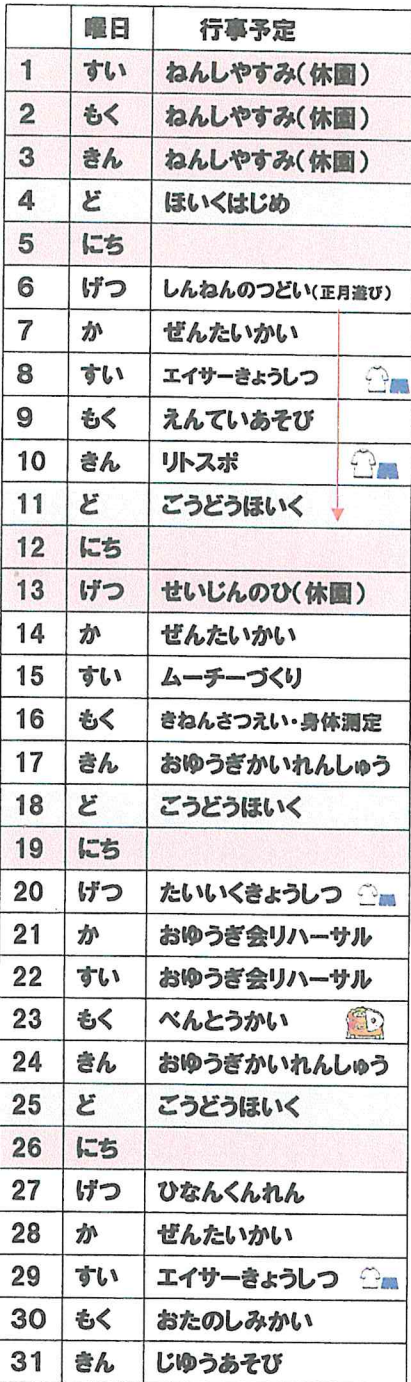 曜日 行事予定
1 すい ねんしやすみ(休園)
2 もく ねんしやすみ(休園)
3 きん ねんしやすみ(休園)
4 ど ほいくはじめ
5 にち
6 げつ しんねんのつどい(正月遊び)
7 か ぜんたいかい
8 すい エイサーきょうしつ
9 もく えんていあそび
10 きん リトスポ
11 ど ごうどうほいく
12 にち
13 げつ せいじんのひ(休園)
14 か ぜんたいかい
15 すい ムーチーづくり
16 もく きねんさつえい・身体測定
17 きん おゆうぎかいれんしゅう
18 ど ごうどうほいく
19 にち
20 げつ たいいくきょうしつ
21 か おゆうぎ会リハーサル
22 すい おゆうぎ会リハーサル
23 もく べんとうかい
24 きん おゆうぎかいれんしゅう
25 ど ごうどうほいく
26 にち
27 げつ ひなんくんれん
28 か ぜんたいかい
29 すい エイサーきょうしつ
30 もく おたのしみかい
31 きん じゆうあそび